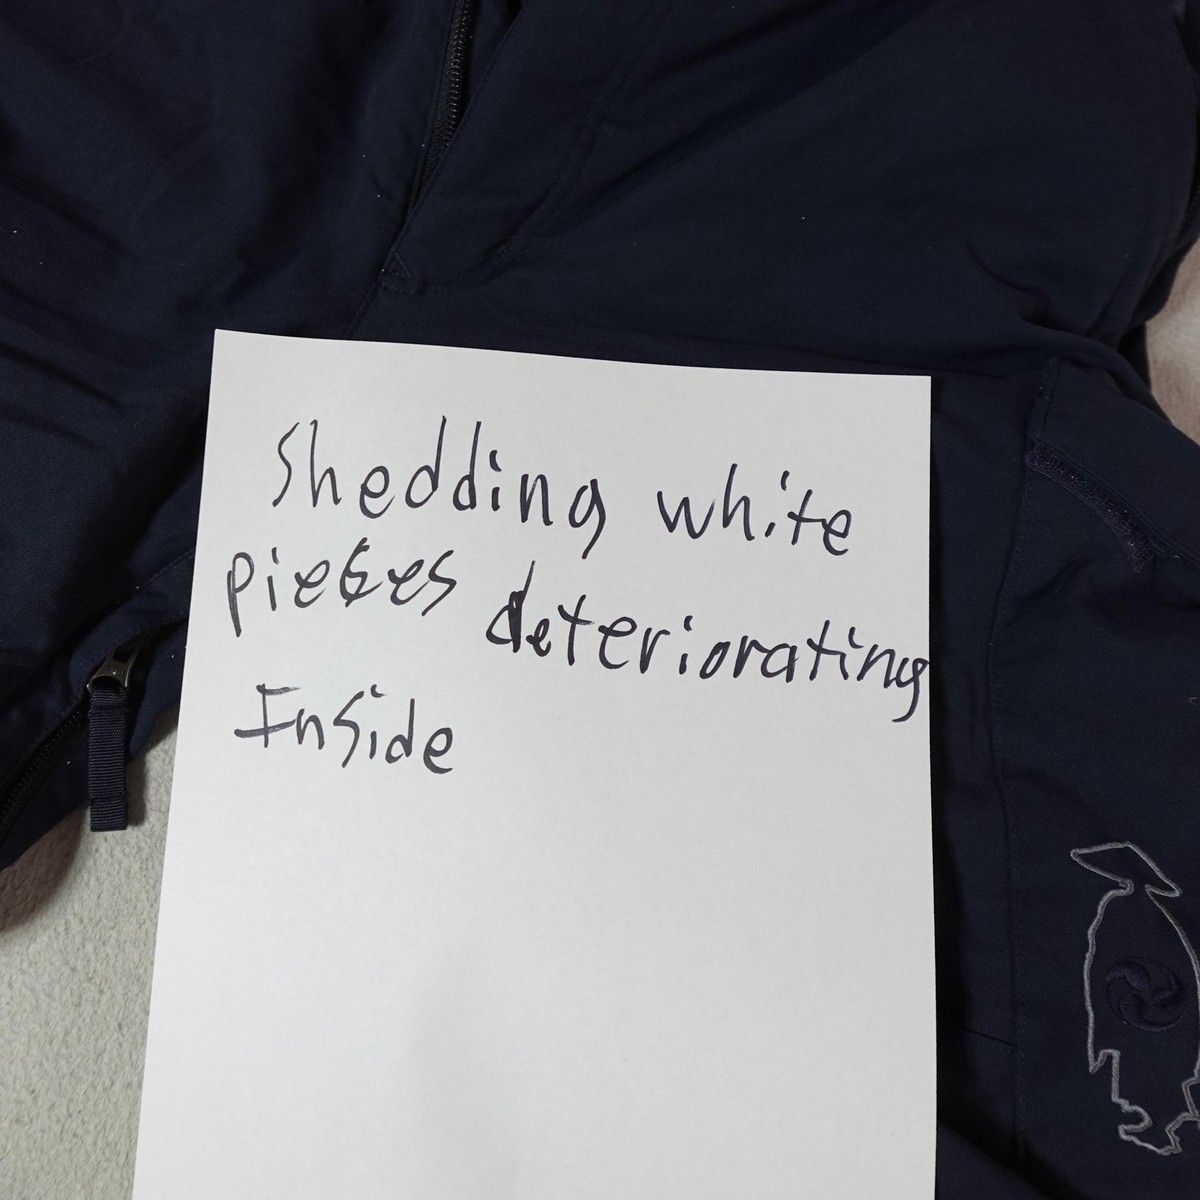 Shedding white
pieces deteriorating
Inside